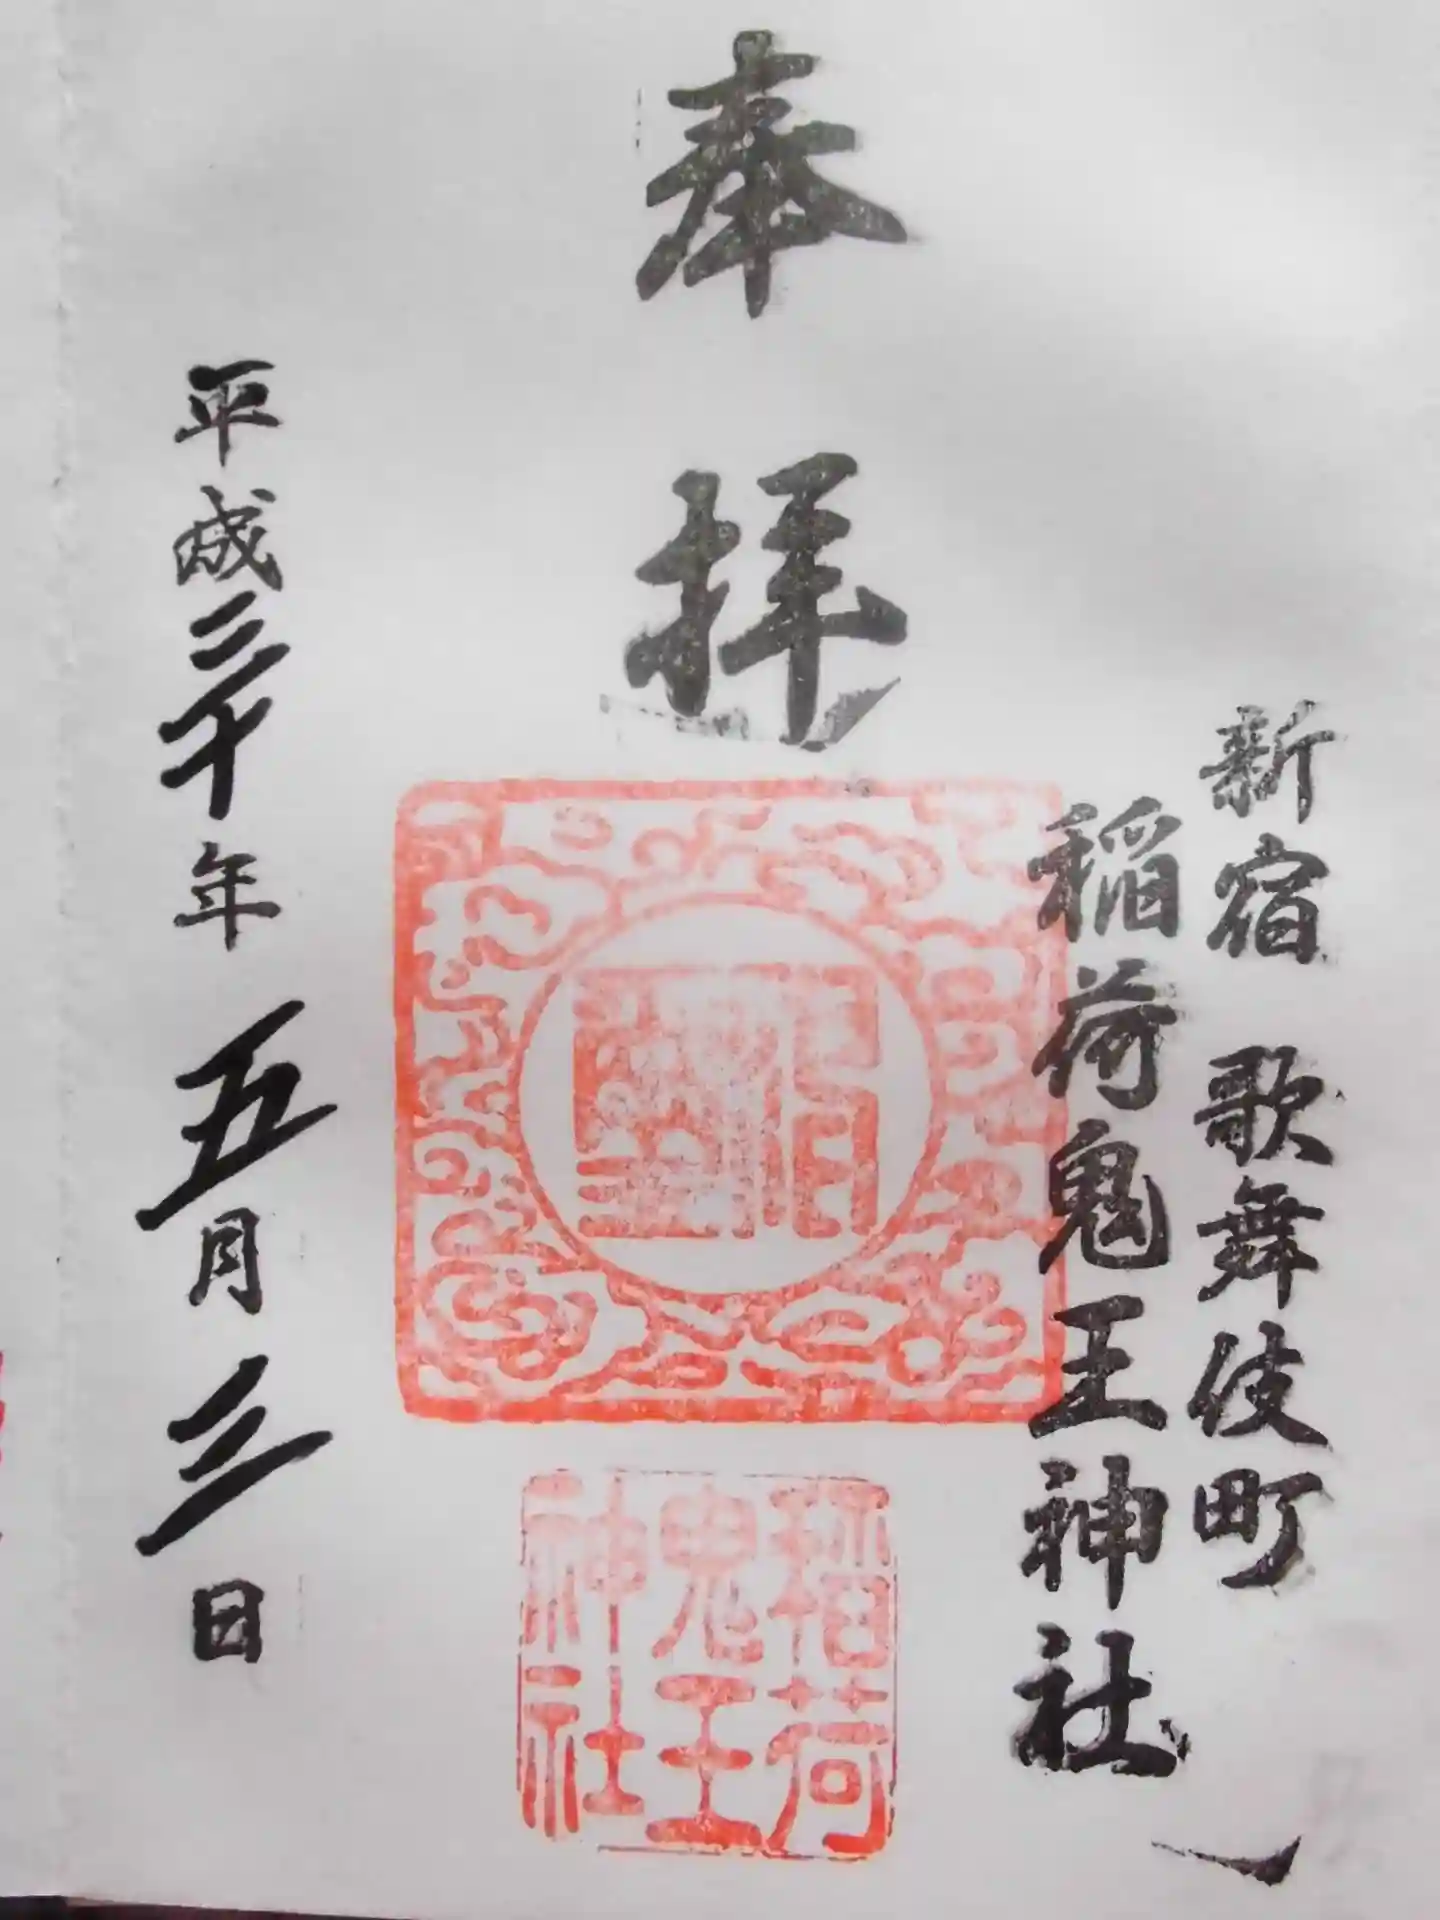 新宿 歌舞伎町
稲荷鬼王神社
奉拝
稲荷
鬼王
神社
平成三十年 五月三日